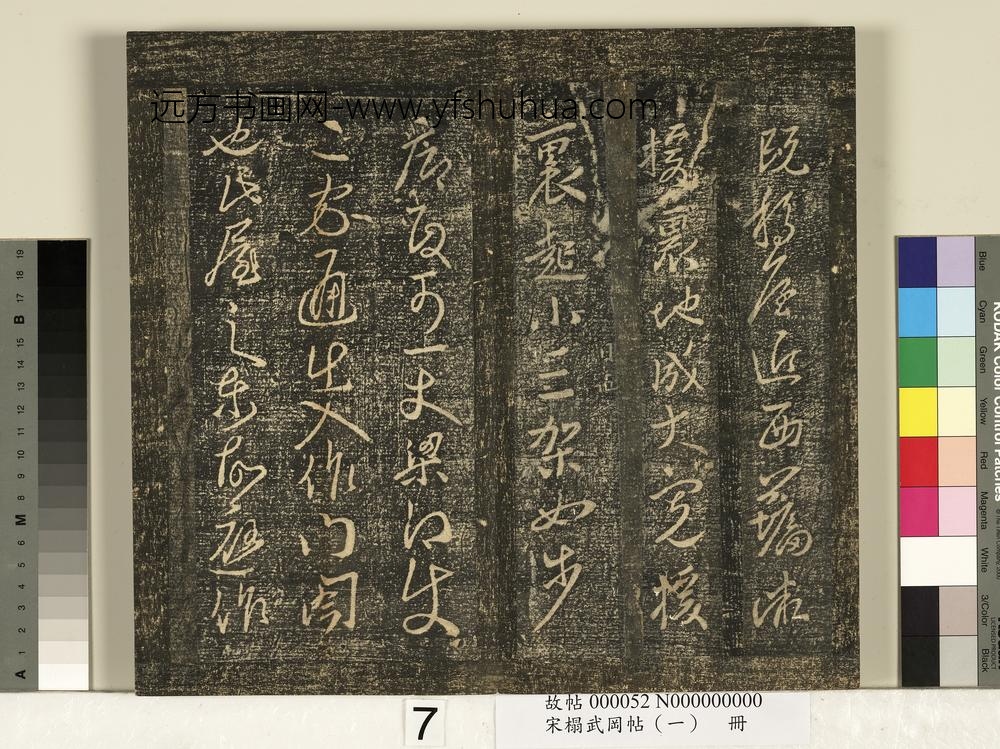 既移屋近西墙来
援裏地成大宽援
裏起小三架如步
廊夜可一丈梁得使
二家通出入作门阁
也民屋之东
远方书画网-www.yfshuhua.com
故帖 000052 N000000000
宋榻武岡帖（一） 冊
7
KODAK Color Control Patches
Blue
Cyan
Green
Yellow
Red
Magenta
White
3/Color
Black
A 1 2 3 4 5 6 M 8 9 10 11 12 13 14 15 B 17 18 19